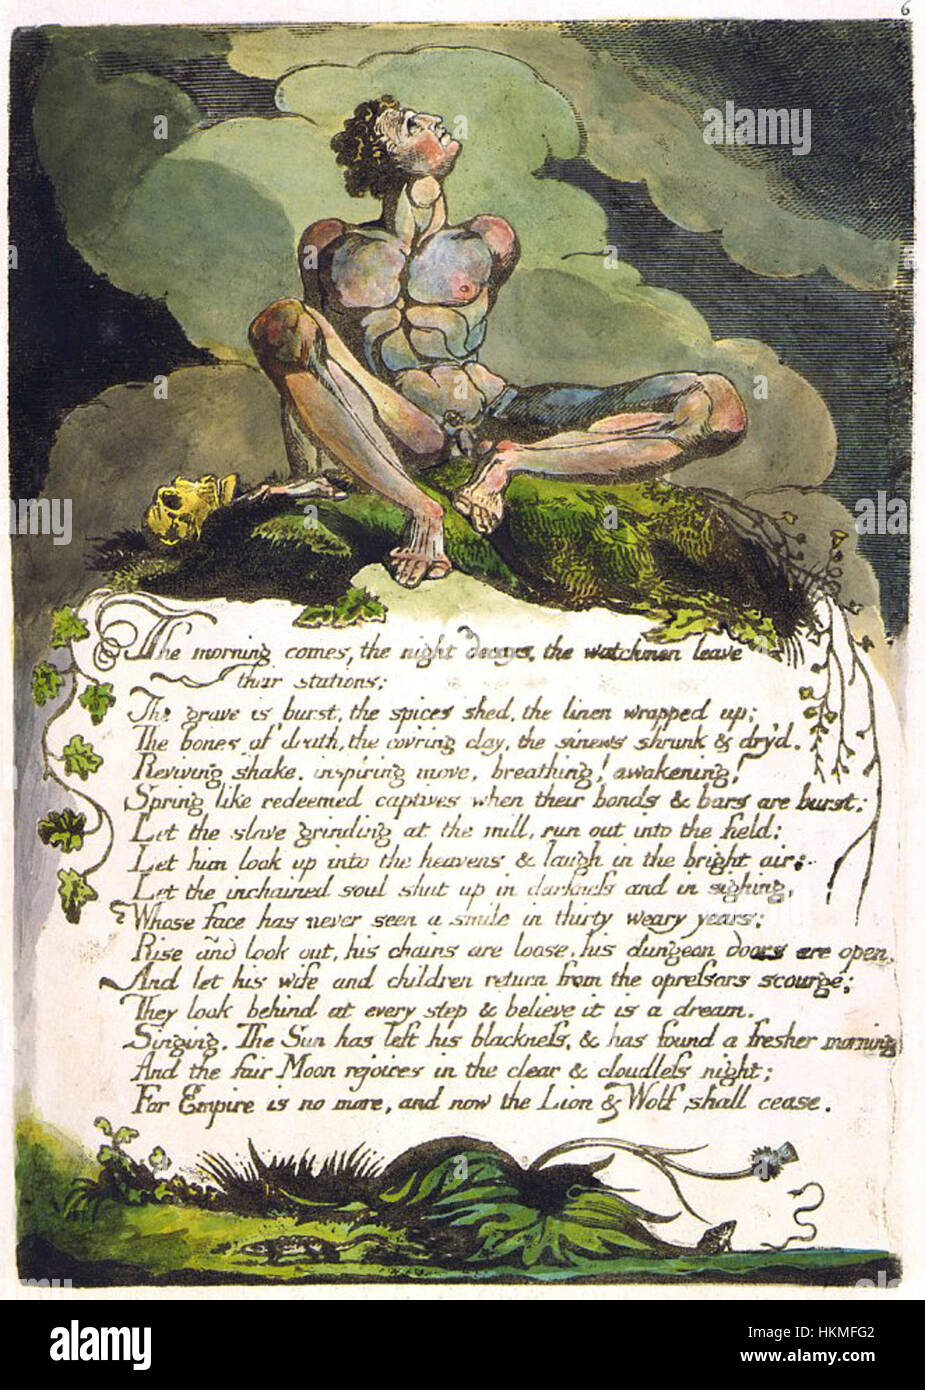 6
a alamy
The morning comes, the night decays, the watchmen leave
their stations;
The grave is burst, the spices shed, the linen wrapped up;
The bones of death, the cov'ring clay, the sinews shrunk & dry'd.
Reviving shake, inspiring move, breathing! awakening!
Spring like redeemed captives when their bonds & bars are burst;
Let the slave grinding at the mill, run out into the field:
Let him look up into the heavens & laugh in the bright air;
Let the inchained soul shut up in darkneſs and in sighing,
Whose face has never seen a smile in thirty weary years;
Rise and look out, his chains are loose, his dungeon doors are open.
And let his wife and children return from the opreſsors scourge;
They look behind at every step & believe it is a dream.
Singing. The Sun has left his blackneſs, & has found a fresher morning
And the fair Moon rejoices in the clear & cloudleſs night;
For Empire is no more, and now the Lion & Wolf shall cease.
alamy
Image ID: HKMFG2
www.alamy.com